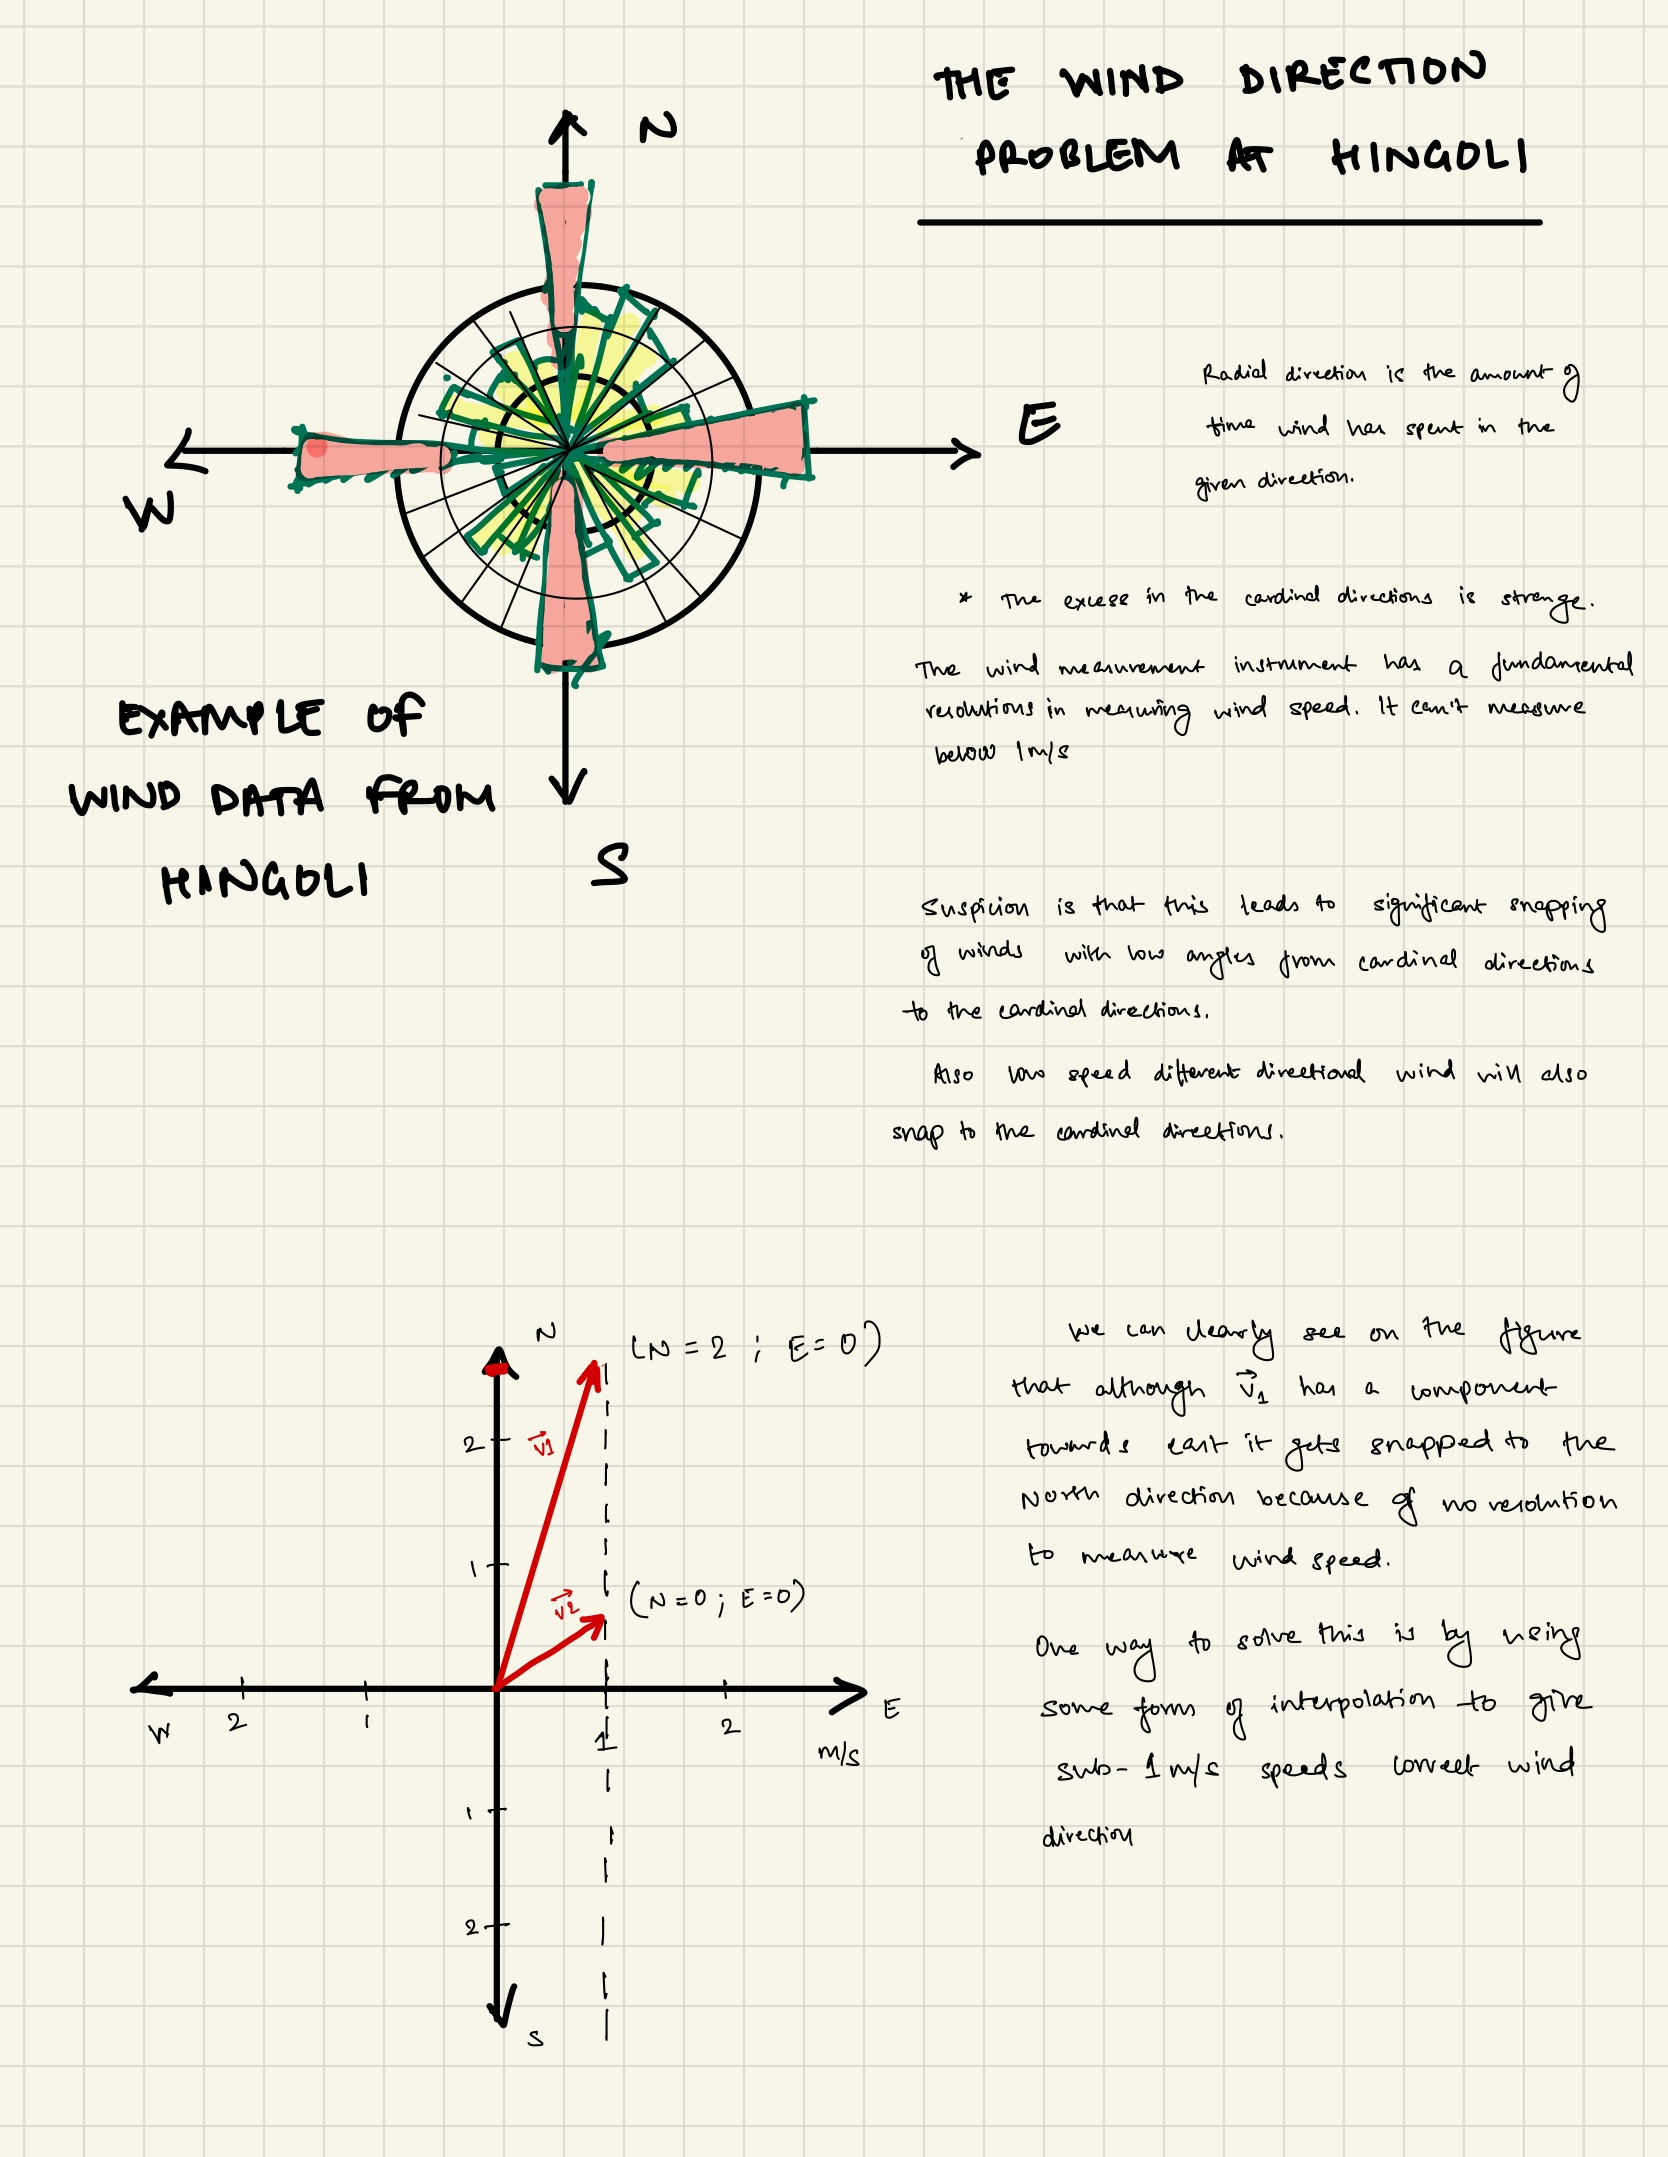 THE WIND DIRECTION
PROBLEM AT HINGOLI
N
E
W
S
EXAMPLE OF
WIND DATA FROM
HINGOLI
Radial direction is the amount of
time wind has spent in the
given direction.
* The excess in the cardinal directions is strange.
The wind measurement instrument has a fundamental
resolutions in measuring wind speed. It can't measure
below 1m/s
Suspicion is that this leads to significant snapping
of winds with low angles from cardinal directions
to the cardinal directions.
Also low speed different directional wind will also
snap to the cardinal directions.
N
(N = 2 ; E = 0)
2
v⃗1
1
v⃗2
(N = 0 ; E = 0)
W 2 1 1 2 E
m/s
1
2
S
We can clearly see on the figure
that although v⃗1 has a component
towards east it gets snapped to the
North direction because of no resolution
to measure wind speed.
One way to solve this is by using
some form of interpolation to give
sub-1m/s speeds correct wind
direction